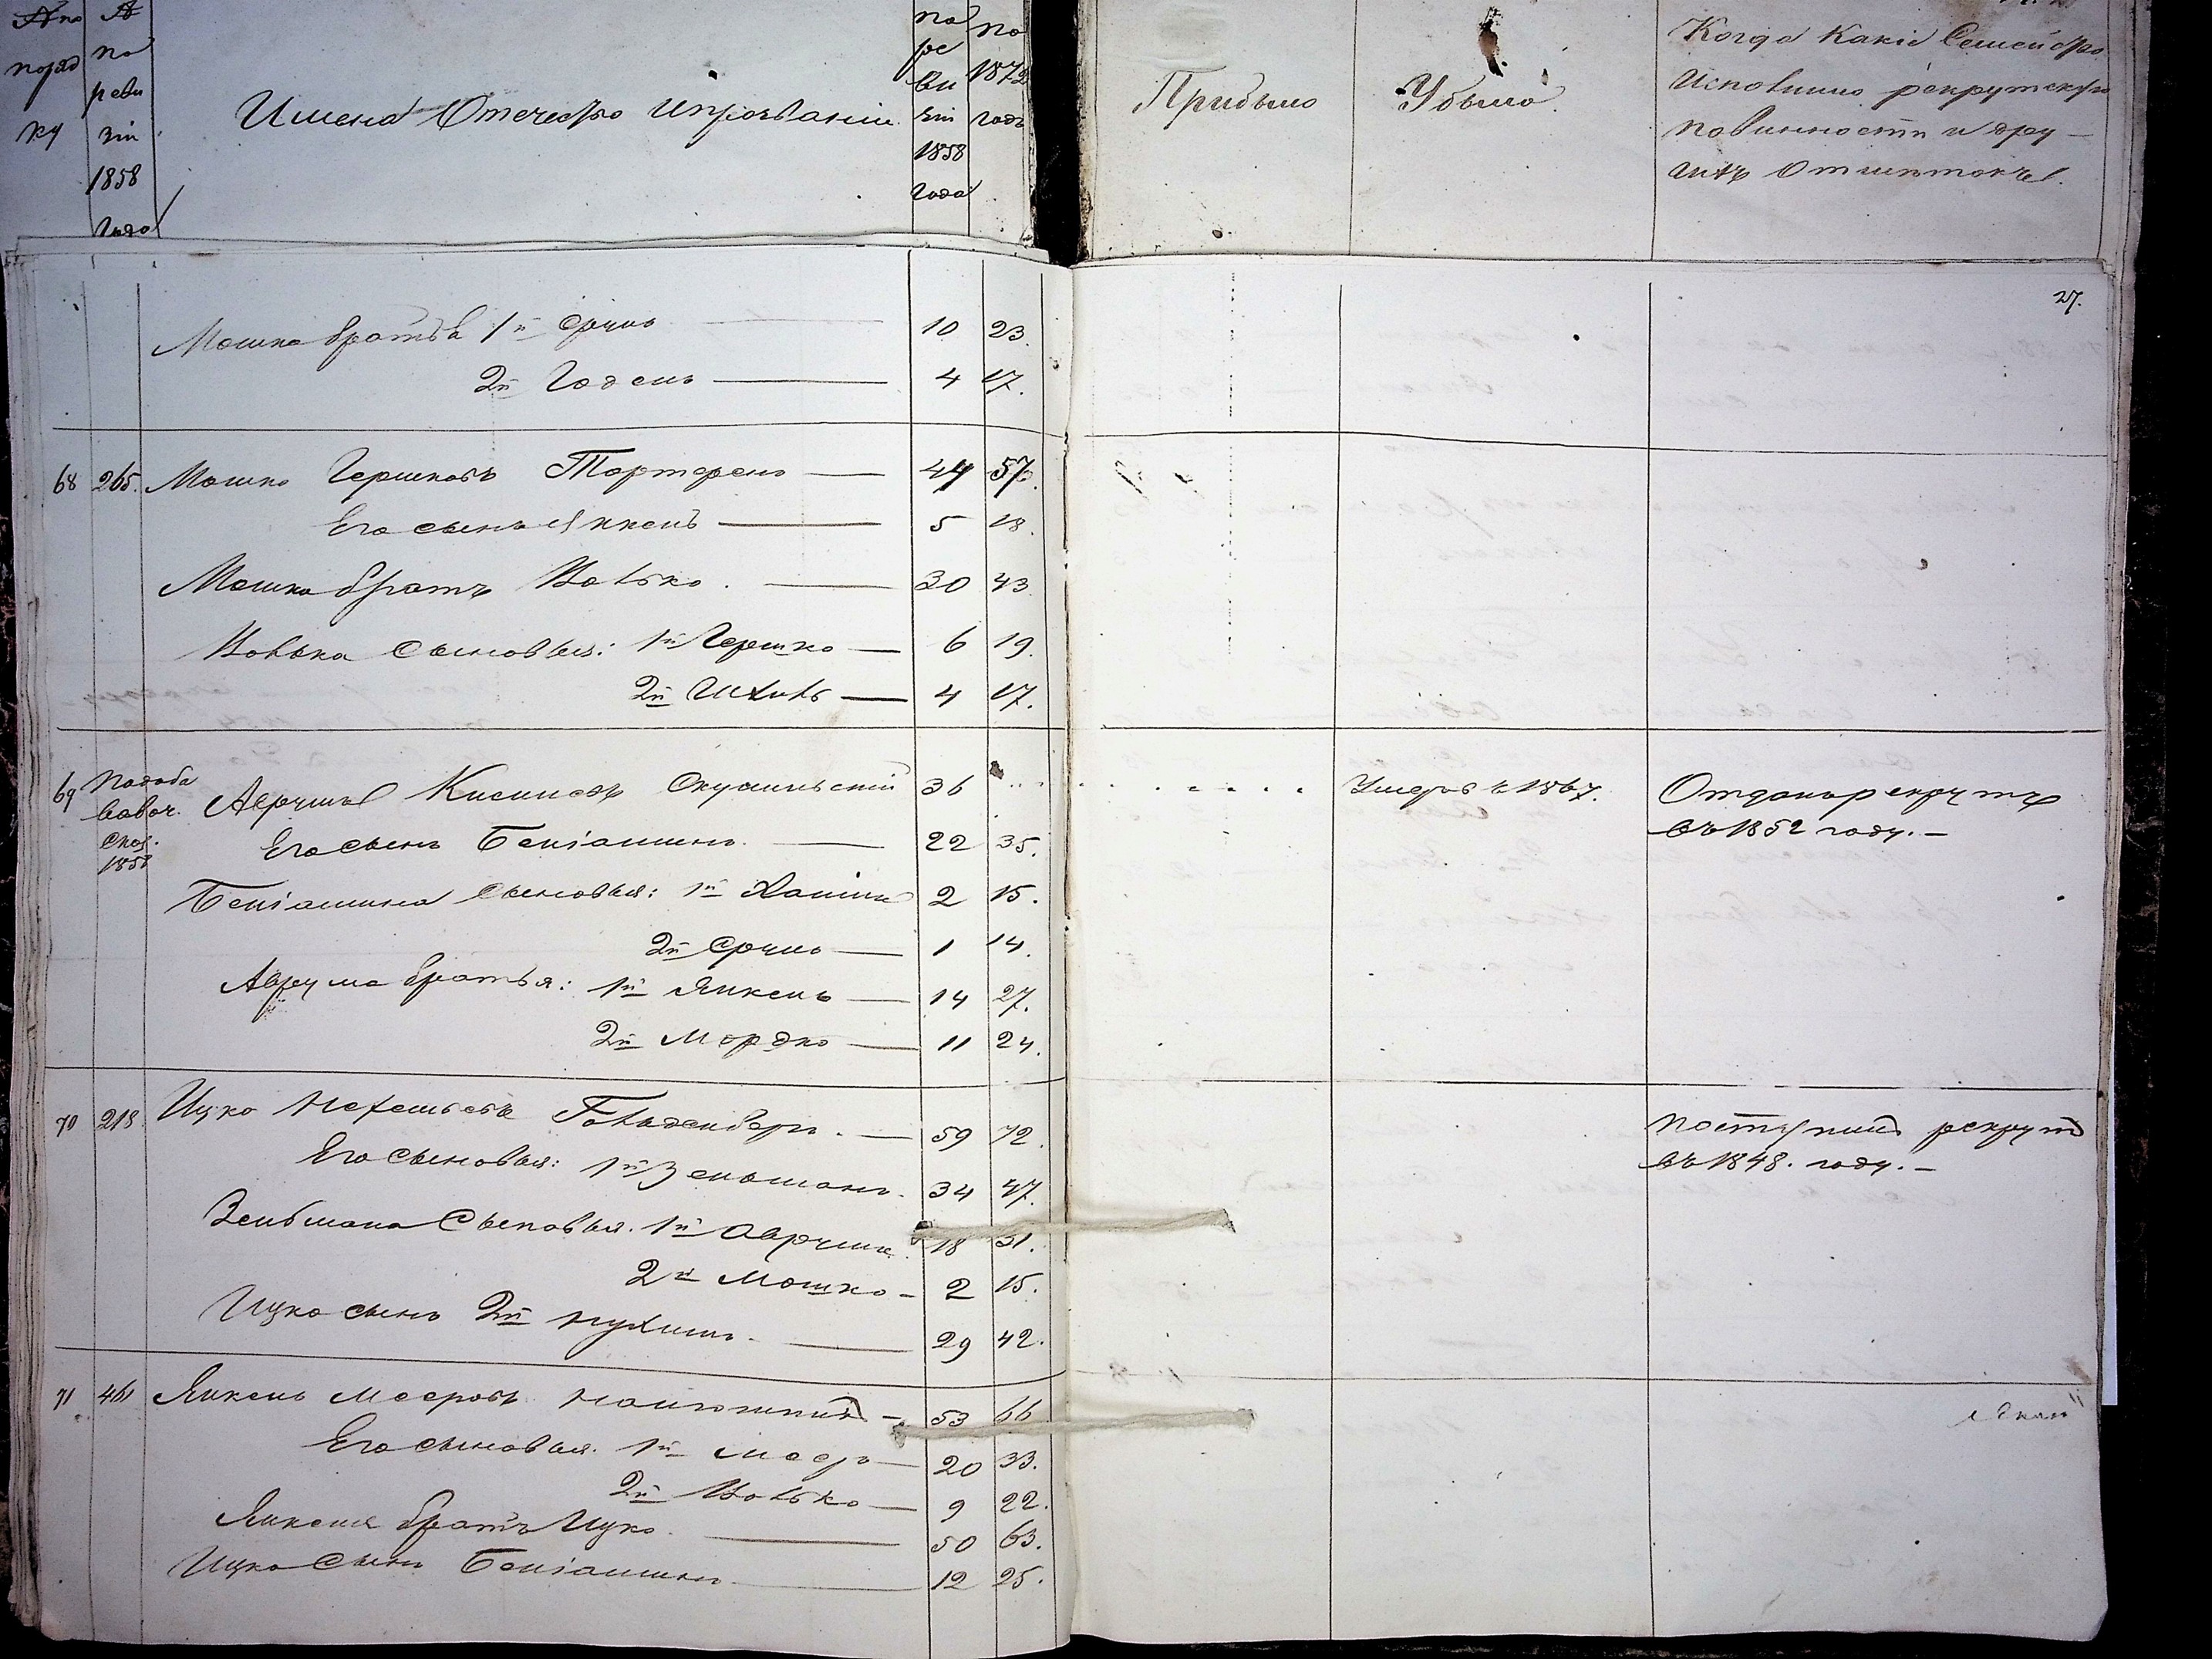 № по поряд ку
№ по реви зіи 1858 года
Имена Отечество и прозваніи
по ре ви зіи 1858 года
по 1872 годъ
Прибыло
Убыло
Когда Какіе Семейство
Исполнило рекрутскую
повинности и дру-
гихъ Отметокъ.
27.
Мошка братья 1й Срулъ 10 23.
2й Годель 4 17.
68 265. Мошко Гершковъ 44 57.
Его сынъ Янкель 5 18.
Мошка братъ Волько. 30 43
Волька сыновья: 1й Гершко 6 19.
2й 4 17.
69 1858 Аврумъ 36 Умеръ въ 1867. Отданъ рекрутъ
въ 1852 году.
Его сынъ Беніаминъ 22 35.
Беніамина сыновья: 1й Хаимъ 2 15.
2й Срулъ 1 14.
Аврума братья: 1й Янкель 14 27.
2й Мордко 11 24.
70 218. Ицко Гольденбергъ 59 72. рекрутъ
въ 1848. году.
Его сыновья: 1й Зельманъ 34 47.
Зельмана Сыновья. 1й Аврумъ 18 31.
2й Мошко 2 15.
Ицка сынъ 2й Нухимъ 29 42.
71 461 Янкель Мееровъ 53 66
Его сыновья. 1й Мееръ 20 33.
2й Волько 9 22.
Янкеля братъ Ицко. 50 63.
Ицка Сынъ Беніаминъ 12 25.